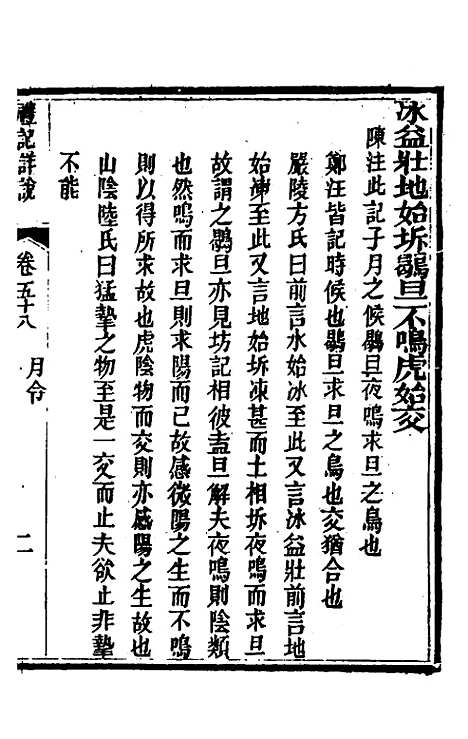 冰益壯地始坼鶡旦不鳴虎始交
陳注此記子月之候鶡旦夜鳴求旦之鳥也
鄭注皆記時候也鶡旦求旦之鳥也交猶合也
嚴陵方氏曰前言水始冰至此又言冰益壯前言地
始凍至此又言地始坼凍甚而土相坼夜鳴而求旦
故謂之鶡旦亦見坊記相彼盍旦解夫夜鳴則陰類
也然鳴而求旦則求陽而已故感微陽之生而不鳴
則以得所求故也虎陰物而交則亦感陽之生故也
山陰陸氏曰猛摯之物至是一交而止夫欲止非摯
不能
禮記詳說
卷五十八
月令
二